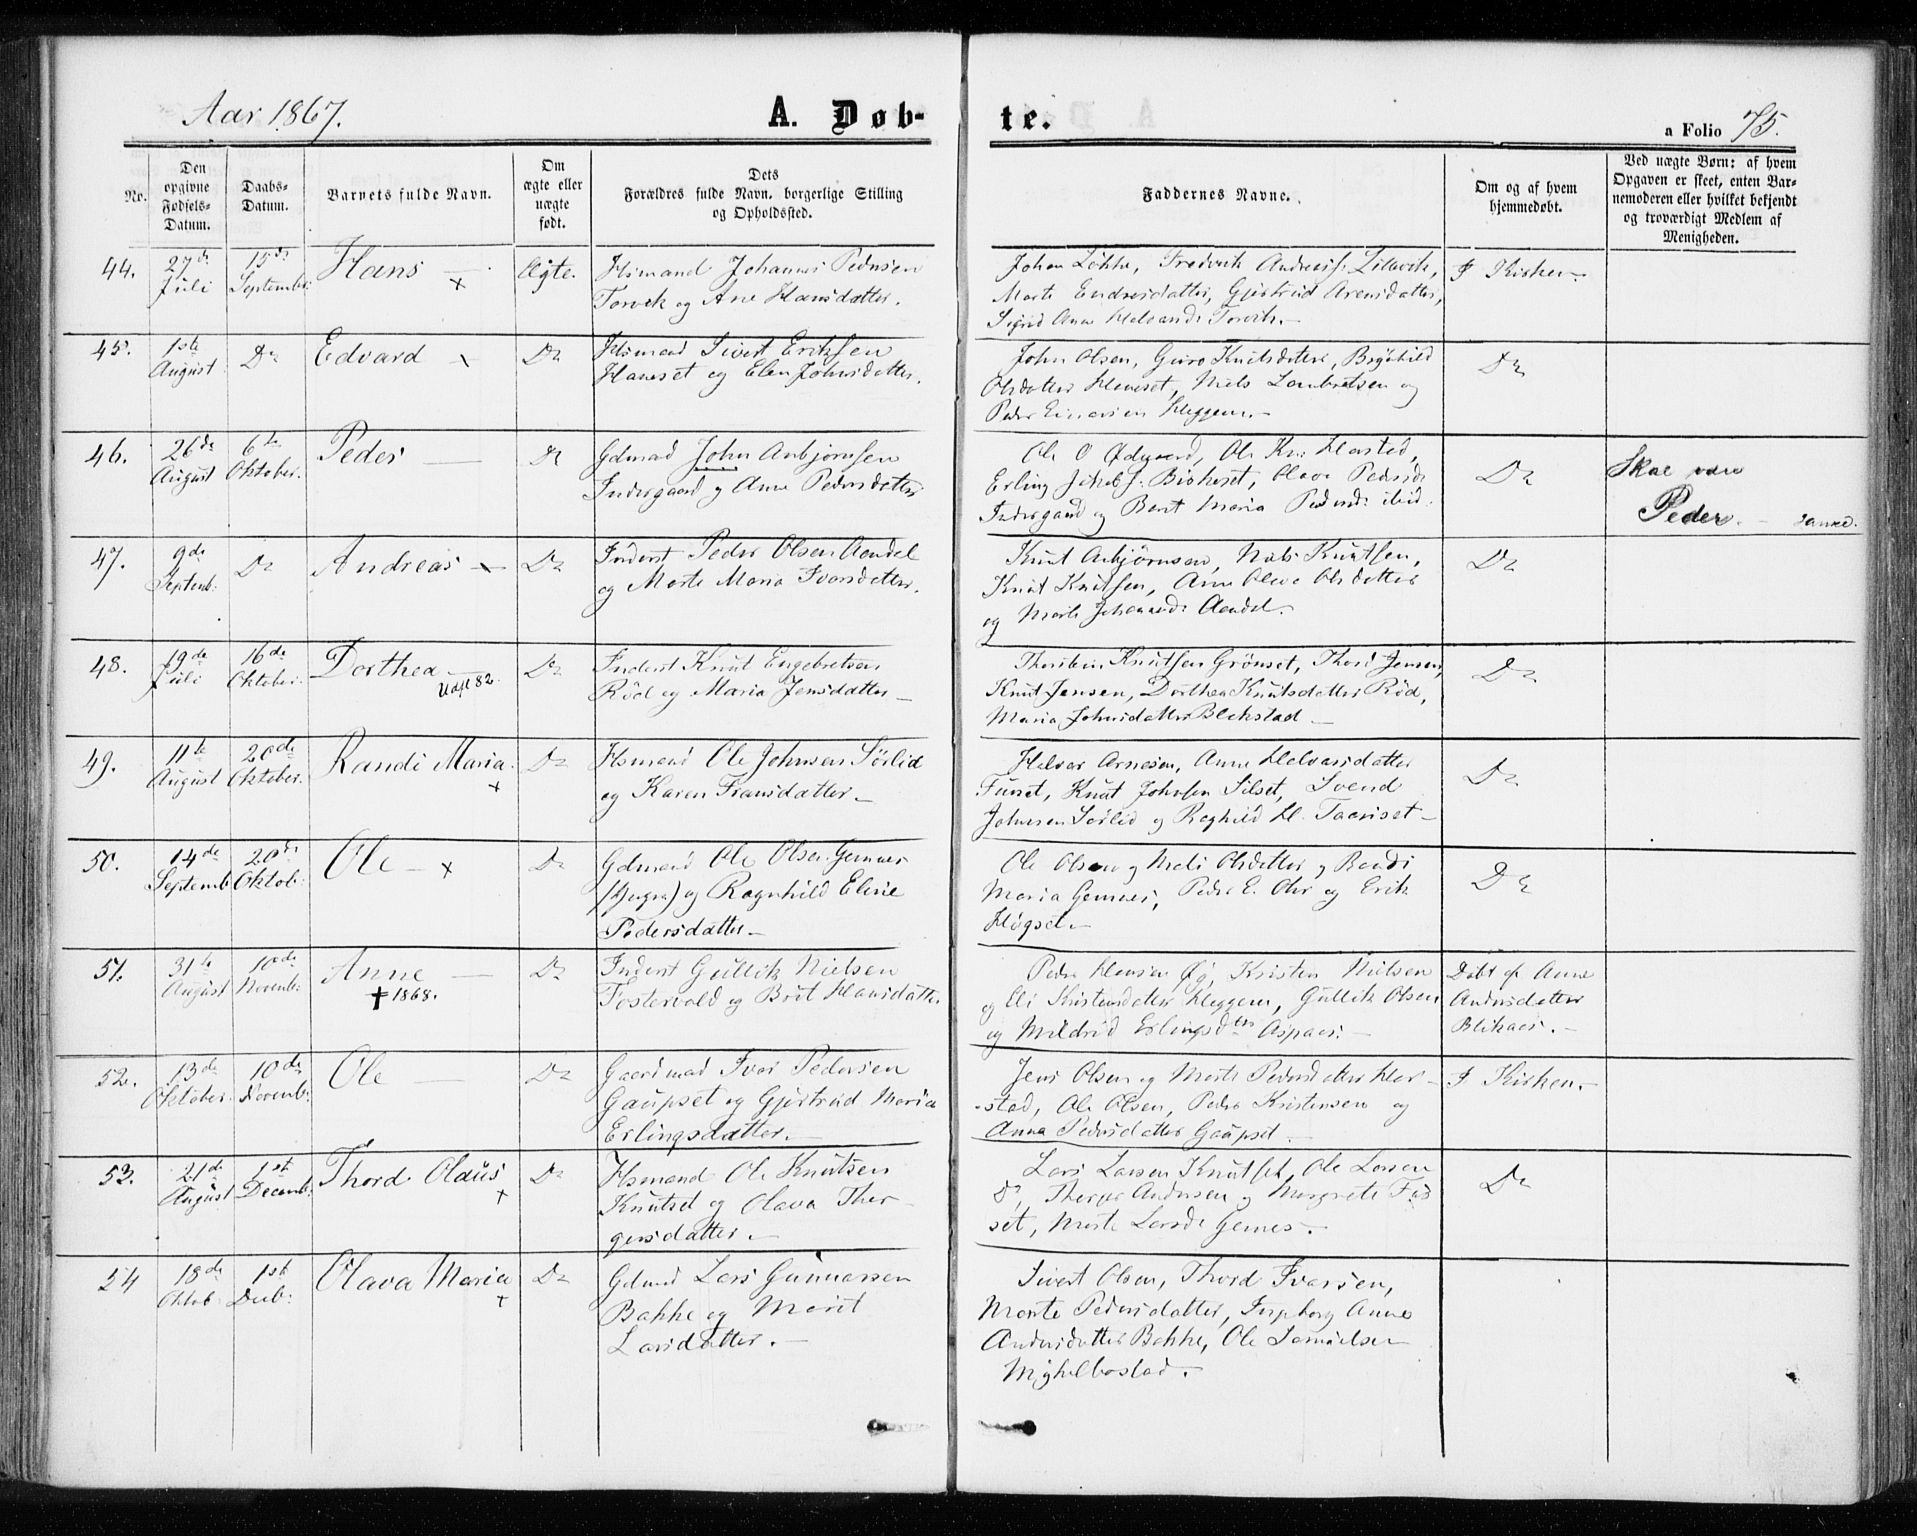 Aar 1867.
A. Døb-
te.
a Folio 75.
No.
Den opgivne Fødsels-Datum.
Daabs-Datum.
Barnets fulde Navn.
Om ægte eller uægte født.
Dets Forældres fulde Navn, borgerlige Stilling og Opholdssted.
Faddernes Navne.
Om og af hvem hjemmedøbt.
Ved uægte Børn: af hvem Opgaven er skeet, enten Barnemoderen eller hvilket bekjendt og troværdigt Medlem af Menigheden.
44.
27de Juli
15de Septembr.
Hans
Ægte.
Hsmand Johannes Pedersen
Torvik og Ane Hansdatter.
Johan Løkke, Fredrik Andreasf.
Marte Endresdatter, Gjertrud Arensdatter,
Sigrid Anne Torvik.
I Kirken.
45.
1ste August
Do
Edvard
Do
Hsmand Sivert Eriksen
Haneset og Elen Johnsdatter.
John Olsen, Guro Knutsdatter, Brynhild
Olsdatter Haneset, Niels Lambretsen og
Peder Einarsen Heggem.
Do
46.
26de August
6te Oktober.
Peder
Do
Gdmand John Anbjørnsen
Indergaard og Anne Pedersdatter
Ole O Ødegaard, Ole Kn. Harstad,
Erling Jakobf. Biskeset, Olava Pedersdr
Indergaard og Berit Maria Pedersdr ibid.
Do
Skal være
Peder.
47.
9de Septemb:
Do
Andreas
Do
Inderst Peder Olsen Aandal
og Marte Maria Ivarsdatter.
Knut Anbjørnsen, Niels Knutsen,
Knut Knutsen, Anne Olava Olsdatter
og Marte Johannesdr Aandal.
Do
48.
19de Juli
16de Oktober.
Dorthea
Udfl 82.
Do
Inderst Knut Engebretsen
Rød og Maria Jensdatter
Thorstein Knutsen Grønset, Thore Jensen,
Knut Jensen, Dorthea Knutsdatter Rød,
Maria Johnsdatter Blekstad
Do
49.
11te August
20de Oktober.
Randi Maria
Do
Hsmand Ole Johnsen Sørlid
og Karen Fransdatter
Halvor Arnesen, Anne Halvorsdatter
Furset, Knut Johnsen Silset, Svend
Johnsen Sørlid og Raghild H. Taariset
Do
50.
14de Septemb.
20de Oktob.
Ole
Do
Gdmand Ole Olsen Gemnes
(yngre) og Ragnhild Eline
Pedersdatter
Ole Olsen og Mali Olsdatter og Randi
Maria Gemnes, Peder E. Ohr og Erik
Høgset.
Do
51.
31te August
10de Novemb.
Anne
✝ 1868.
Do
Inderst Gullik Nielsen
Fostervold og Brit Hansdatter
Peder Hansen Øy, Kristen Nielsen
og Eli Kristensdatter Heggem, Gullik Olsen
og Mildrid Erlingsdtr Aspaas.
Døbt af Anne
Andersdatter
Blikaas.
52.
13de Oktober.
10de Novemb:
Ole
Do
Gaardmand Iver Pedersen
Gaupset og Gjertrud Maria
Erlingsdatter.
Jens Olsen og Marte Pedersdatter Har-
stad, Ole Olsen, Peder Kristensen og
Anna Pedersdatter Gaupset
I Kirken.
53.
21de August
1ste Decemb:
Thord Olaus
Do
Hsmand Ole Knutsen
Knutset og Olava Thor-
gersdatter.
Lars Larsen Knutset, Ole Larsen
Do, Andersen og Margrete
set, Marte Larsdr Gemnes.
Do
54
18de Oktob:
1ste Decb:
Olava Maria
Do
Gdmand Lars Gunnarsen
Bakke og Marit
Larsdatter.
Sivert Olsen, Thord Ivarsen,
Marte Pedersdatter, Ingeborg Anne
Andersdatter Bakke, Ole Samuelsen
Mykelbostad.